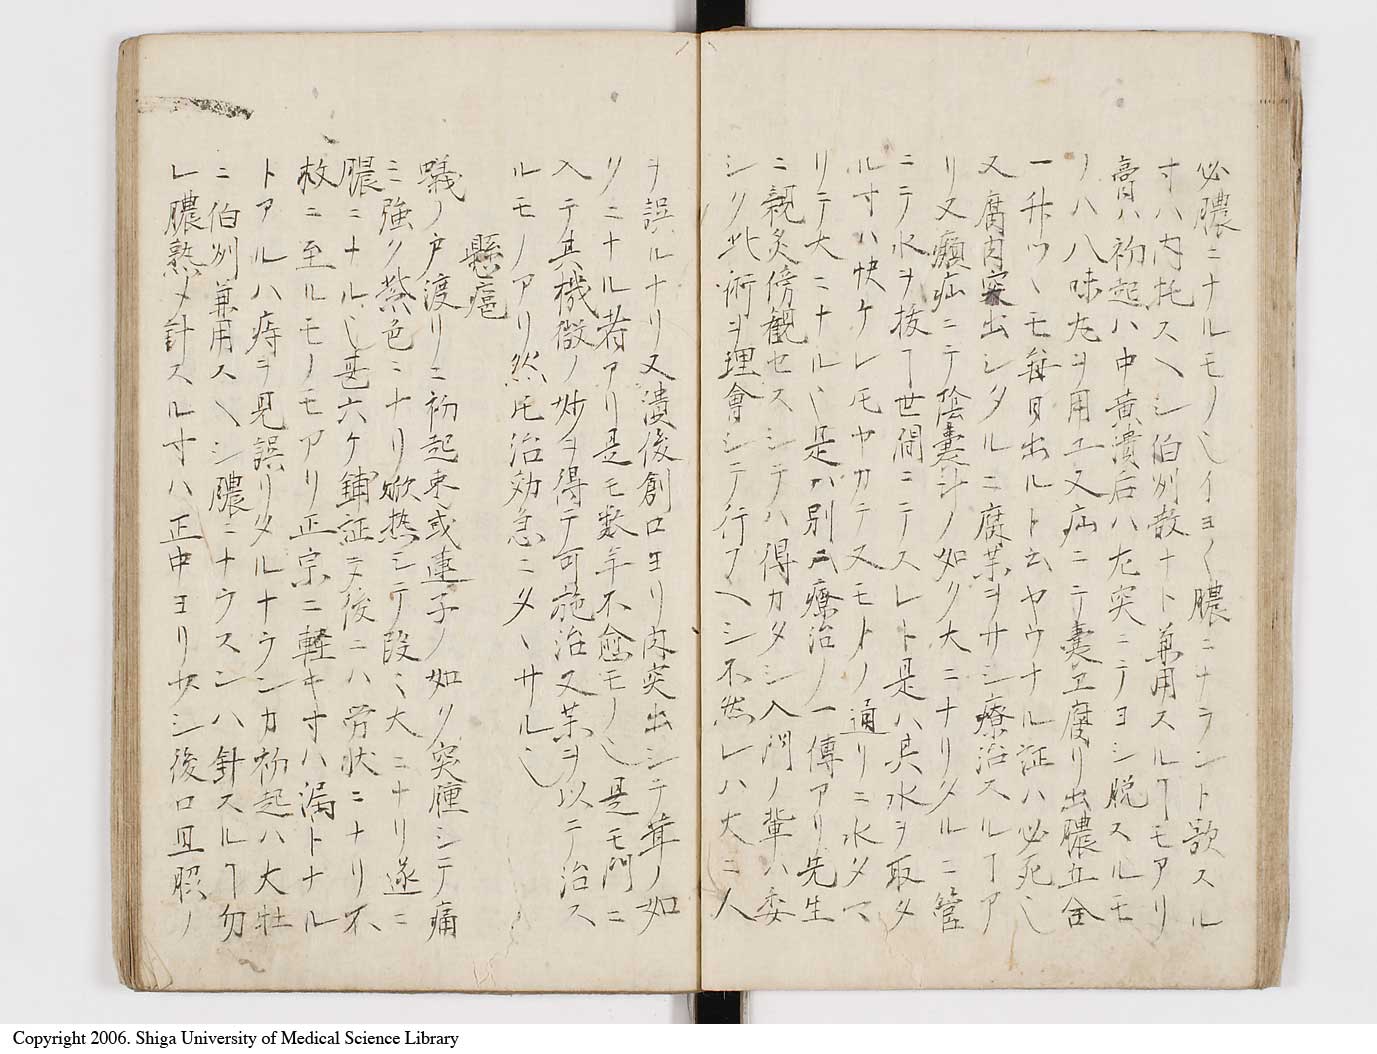 必膿ニナルモノ乄イヨ〱膿ニナラント欲スル
寸ハ内托スヘシ伯州散ナト兼用スルヿモアリ
膏ハ初起ハ中黄潰后ハ左突ニテヨシ脱スルモ
ノハ八味丸ヲ用ユ又疝ニテ嚢エ腐リ出膿五合
一升ツヽモ毎日出ルト云ヤウナル証ハ必死乄
又腐肉突出シタルニ腐薬ヲサシ療治スルヿア
リ又癩疝ニテ陰嚢斗ノ如ク大ニナリタルニ管
ニテ水ヲ抜ヿ世間ニテスレト是ハ其水ヲ取タ
ル寸ハ快ケレ𪜈ヤカテ又モトノ通リニ水タマ
リテ大ニナル乄是ハ別ニ療治ノ一傳アリ先生
ニ親炙傍観セスシテハ得カタシ入門ノ輩ハ委
シク此術ヲ理會シテ行フヘシ不然レハ大ニ人
ヲ誤ルナリ又潰後創口ヨリ肉突出シテ茸ノ如
クニナル者アリ是モ数年不愈モノ乄是モ門ニ
入テ其機微ノ妙ヲ得テ可施治又薬ヲ以テ治ス
ルモノアリ然𪜈治効急ニタヽサル乄
懸癰
蟻ノ戸渡リニ初起棗或蓮子ノ如ク突腫シテ痛
ミ強ク紫色ニナリ焮熱シテ段〻大ニナリ遂ニ
膿ニナル乄甚六ケ鋪証ニテ後ニハ労状ニナリ不
救ニ至ルモノモアリ正宗ニ軽キ寸ハ漏トナル
トアルハ痔ヲ見誤リタルナランカ初起ハ大牡
ニ伯州兼用スヘシ膿ニナラスンハ針スルヿ勿
レ膿熟〆計スル寸ハ正中ヨリサシ後口且照ノ
Copyright 2006. Shiga University of Medical Science Library